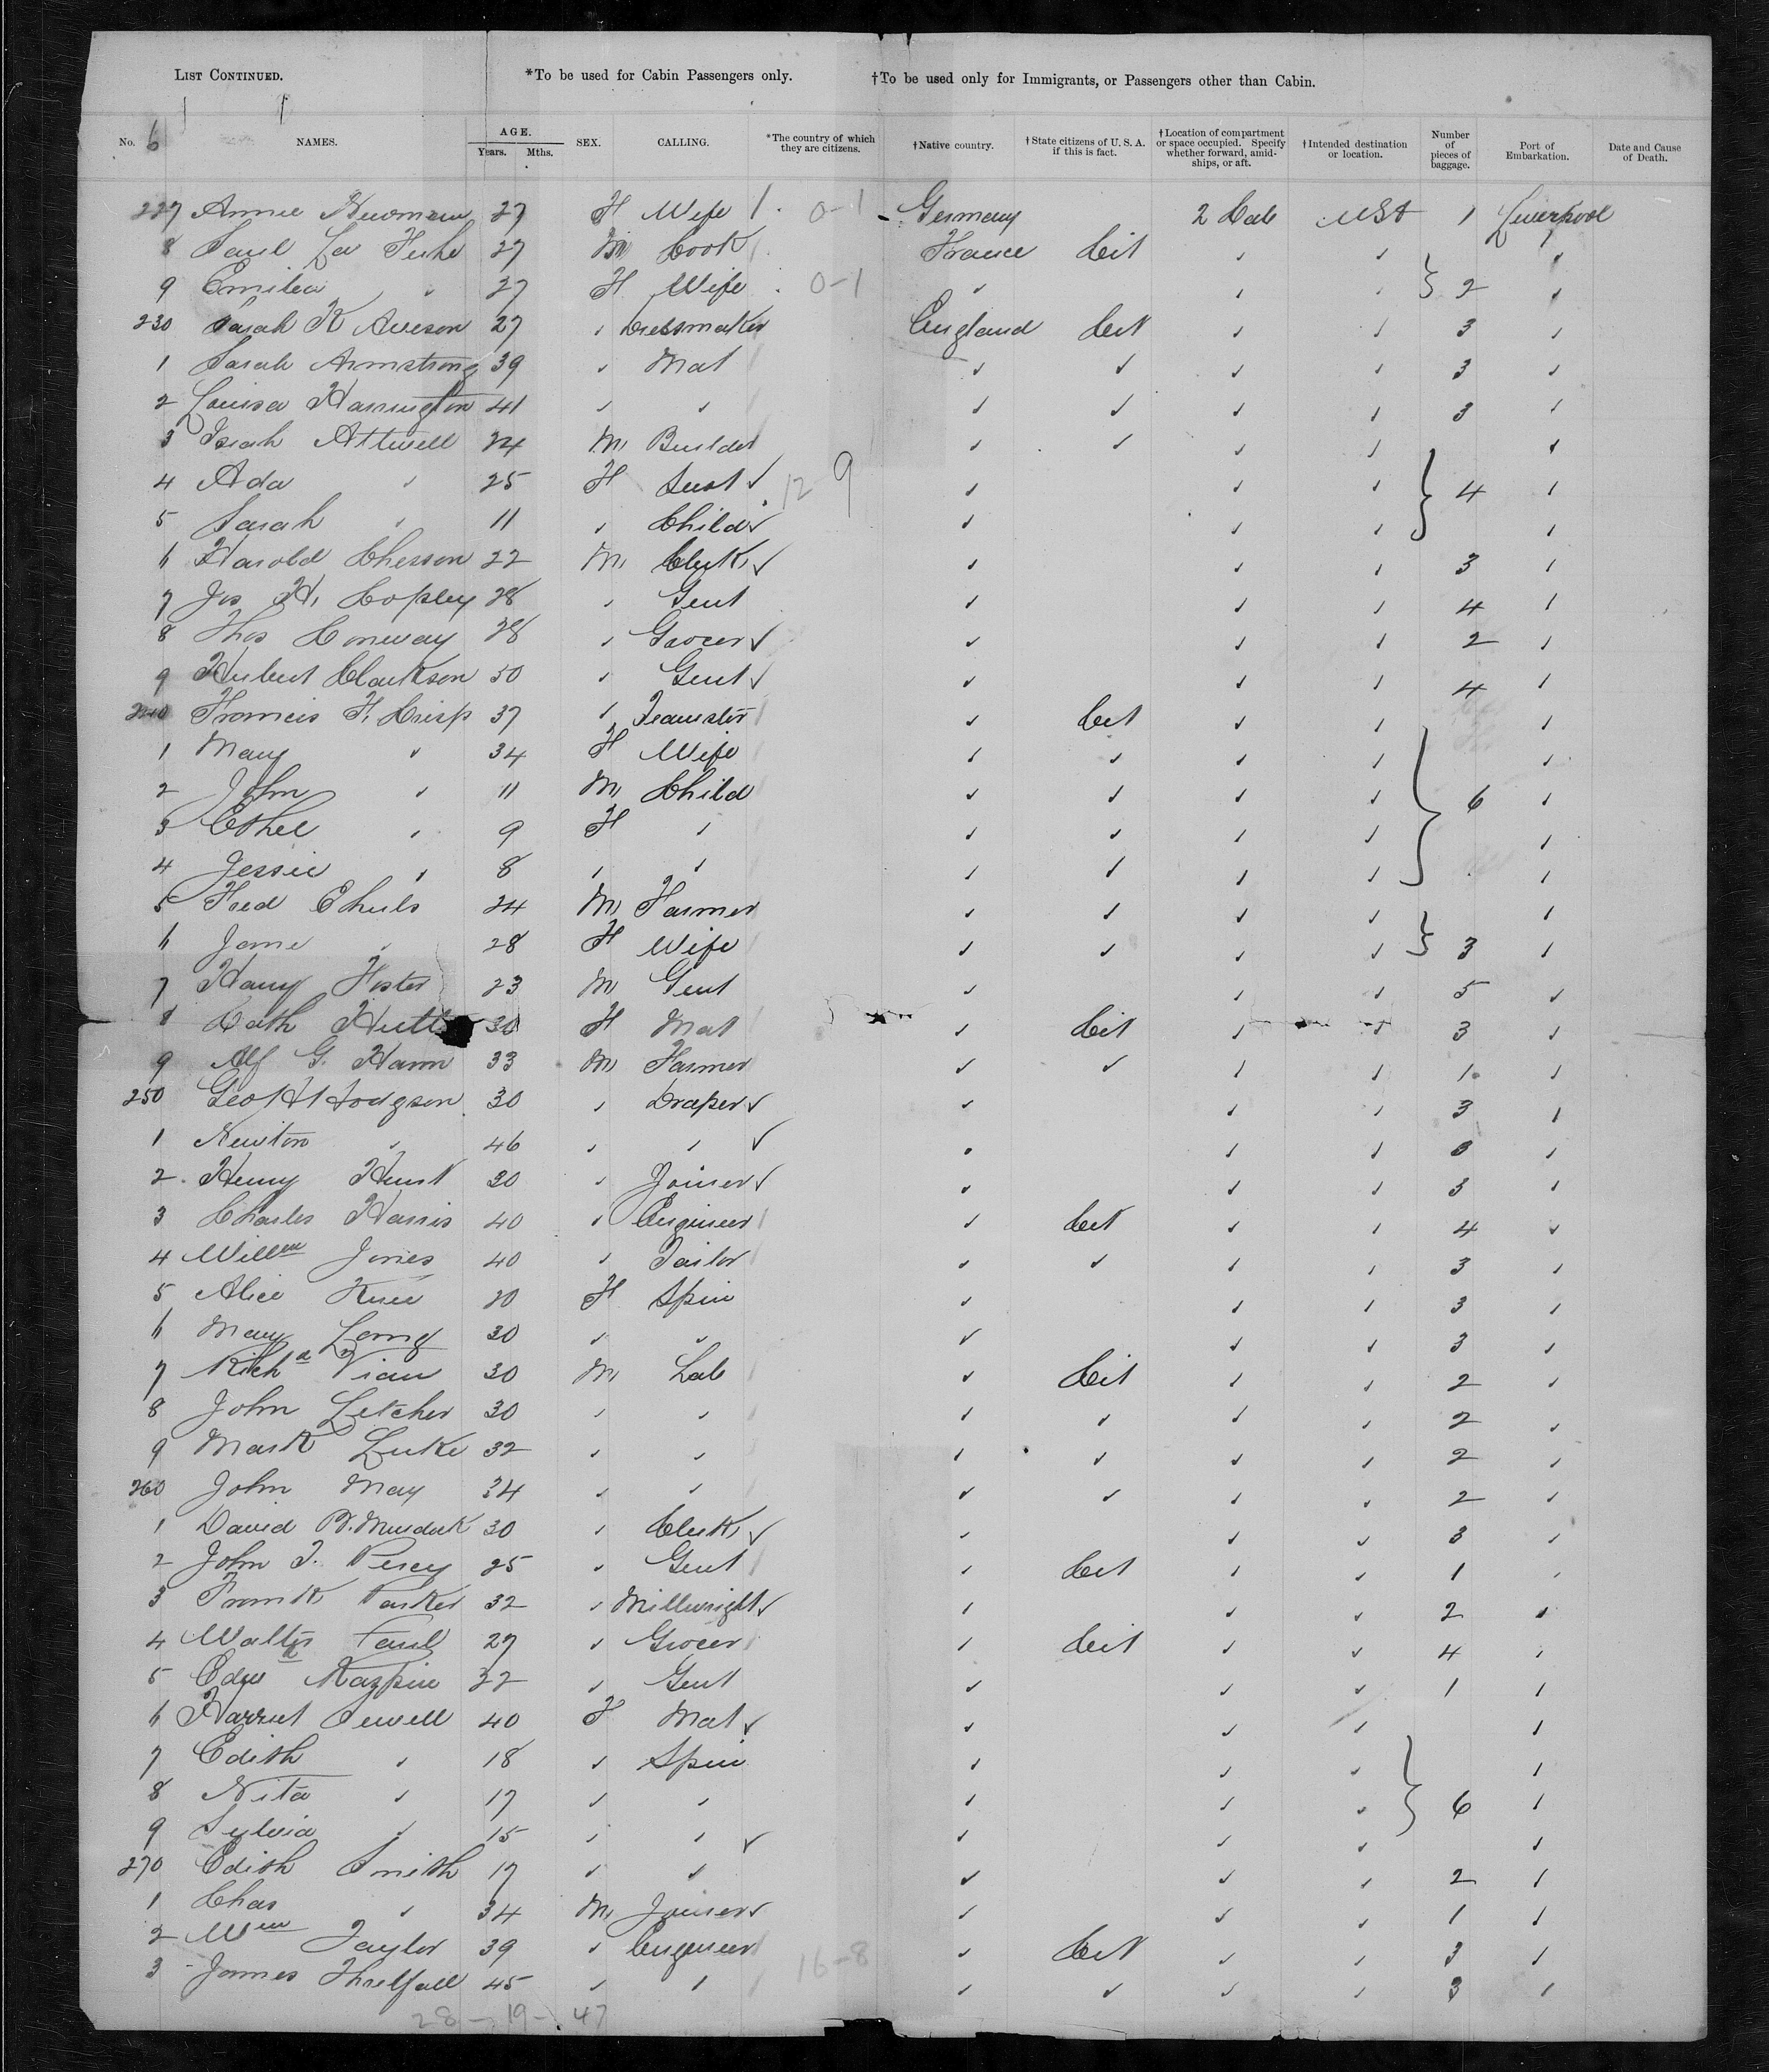 List Continued. *To be used for Cabin Passengers only. †To be used only for Immigrants, or Passengers other than Cabin.
No. 6 NAMES. AGE. Years. Mths. SEX. CALLING. *The country of which they are citizens. †Native country. †State citizens of U. S. A. if this is fact. †Location of compartment or space occupied. Specify whether forward, amidships, or aft. †Intended destination or location. Number of pieces of baggage. Port of Embarkation. Date and Cause of Death.
227 Annie Newman 27 F Wife 0-1 Germany 2 Cab USA 1 Liverpool
8 Paul La 27 M Cook France Cit ✓ ✓ ✓
9 Emilea " 27 F Wife 0-1 ✓ ✓ ✓ 2 ✓
230 Sarah K Aveson 27 ✓ Dressmaker England Cit ✓ ✓ 3 ✓
1 Sarah Armstrong 39 ✓ Mat ✓ ✓ ✓ ✓ 3 ✓
2 Louisa Harrington 41 ✓ ✓ ✓ ✓ ✓ ✓ 3 ✓
3 Isiah Attwell 24 M Builder ✓ ✓ ✓ ✓ ✓
4 Ada ✓ 25 F ✓ 12 9 ✓ ✓ ✓ 4 ✓
5 Sarah ✓ 11 ✓ Child ✓ ✓ ✓ ✓ ✓
6 Harold Chesson 22 M Clerk ✓ ✓ ✓ ✓ 3 ✓
7 Jos H. Copley 28 ✓ Gent ✓ ✓ ✓ 4 ✓
8 Thos Conway 28 ✓ Grocer ✓ ✓ ✓ ✓ 2 ✓
9 Hubert Clarkson 50 ✓ Gent ✓ ✓ ✓ ✓ 4 ✓
240 Francis F. Crisp 37 ✓ Teamster ✓ Cit ✓ ✓ ✓
1 Mary ✓ 34 F Wife ✓ ✓ ✓ ✓ ✓
2 John ✓ 11 M Child ✓ ✓ ✓ ✓ 6 ✓
3 Ethel ✓ 9 F ✓ ✓ ✓ ✓ ✓ ✓
4 Jessie ✓ 8 ✓ ✓ ✓ ✓ ✓ ✓ ✓
5 Fred 24 M Farmer ✓ ✓ ✓ ✓ ✓
6 Jane ✓ 28 F Wife ✓ ✓ ✓ ✓ 3 ✓
7 Harry Foster 23 M Gent ✓ ✓ ✓ 5 ✓
8 Cath 30 F Mat ✓ Cit ✓ ✓ 3 ✓
9 Alf G. Hann 33 M Farmer ✓ ✓ ✓ ✓ 1 ✓
250 Geo H Hodgson 30 ✓ Draper ✓ ✓ ✓ ✓ 3 ✓
1 Newton ✓ 46 ✓ ✓ ✓ ✓ ✓ ✓ ✓
2 Henry Hurst 30 ✓ Joiner ✓ ✓ ✓ ✓ 3 ✓
3 Charles Harris 40 ✓ Engineer ✓ Cit ✓ ✓ 4 ✓
4 Willm Jones 40 ✓ Tailor ✓ ✓ ✓ ✓ 3 ✓
5 Alice 20 F Spin ✓ ✓ ✓ 3 ✓
6 Mary Lang 30 ✓ ✓ ✓ ✓ ✓ 3 ✓
7 Richd Vian 30 M Lab ✓ Cit ✓ ✓ 2 ✓
8 John Letcher 30 ✓ ✓ ✓ ✓ ✓ ✓ 2 ✓
9 Mark Luke 32 ✓ ✓ ✓ ✓ ✓ ✓ 2 ✓
260 John May 34 ✓ ✓ ✓ ✓ ✓ ✓ 2 ✓
1 David B. Murdock 30 ✓ Clerk ✓ ✓ ✓ ✓ 3 ✓
2 John T. Percy 25 ✓ Gent ✓ Cit ✓ ✓ 1 ✓
3 Frank Parker 32 ✓ Millwright ✓ ✓ ✓ ✓ 2 ✓
4 Walter Paul 27 ✓ Grocer ✓ Cit ✓ ✓ 4 ✓
5 Edw Razpin 32 ✓ Gent ✓ ✓ ✓ 1 ✓
6 Harriet Sewell 40 F Mat ✓ ✓ ✓ ✓ ✓
7 Edith ✓ 18 ✓ Spin ✓ ✓ ✓ ✓
8 Nita ✓ 17 ✓ ✓ ✓ ✓ ✓ 6 ✓
9 Sylvia ✓ 15 ✓ ✓ ✓ ✓ ✓ ✓ ✓
270 Edith Smith 17 ✓ ✓ ✓ ✓ ✓ 2 ✓
1 Chas ✓ 34 M Joiner ✓ ✓ ✓ ✓ 1 ✓
2 Wm Taylor 39 ✓ Engineer ✓ Cit ✓ ✓ 3 ✓
3 James Threlfall 45 ✓ ✓ 16-8 ✓ ✓ ✓ ✓ 3 ✓
28 - 19 - 47